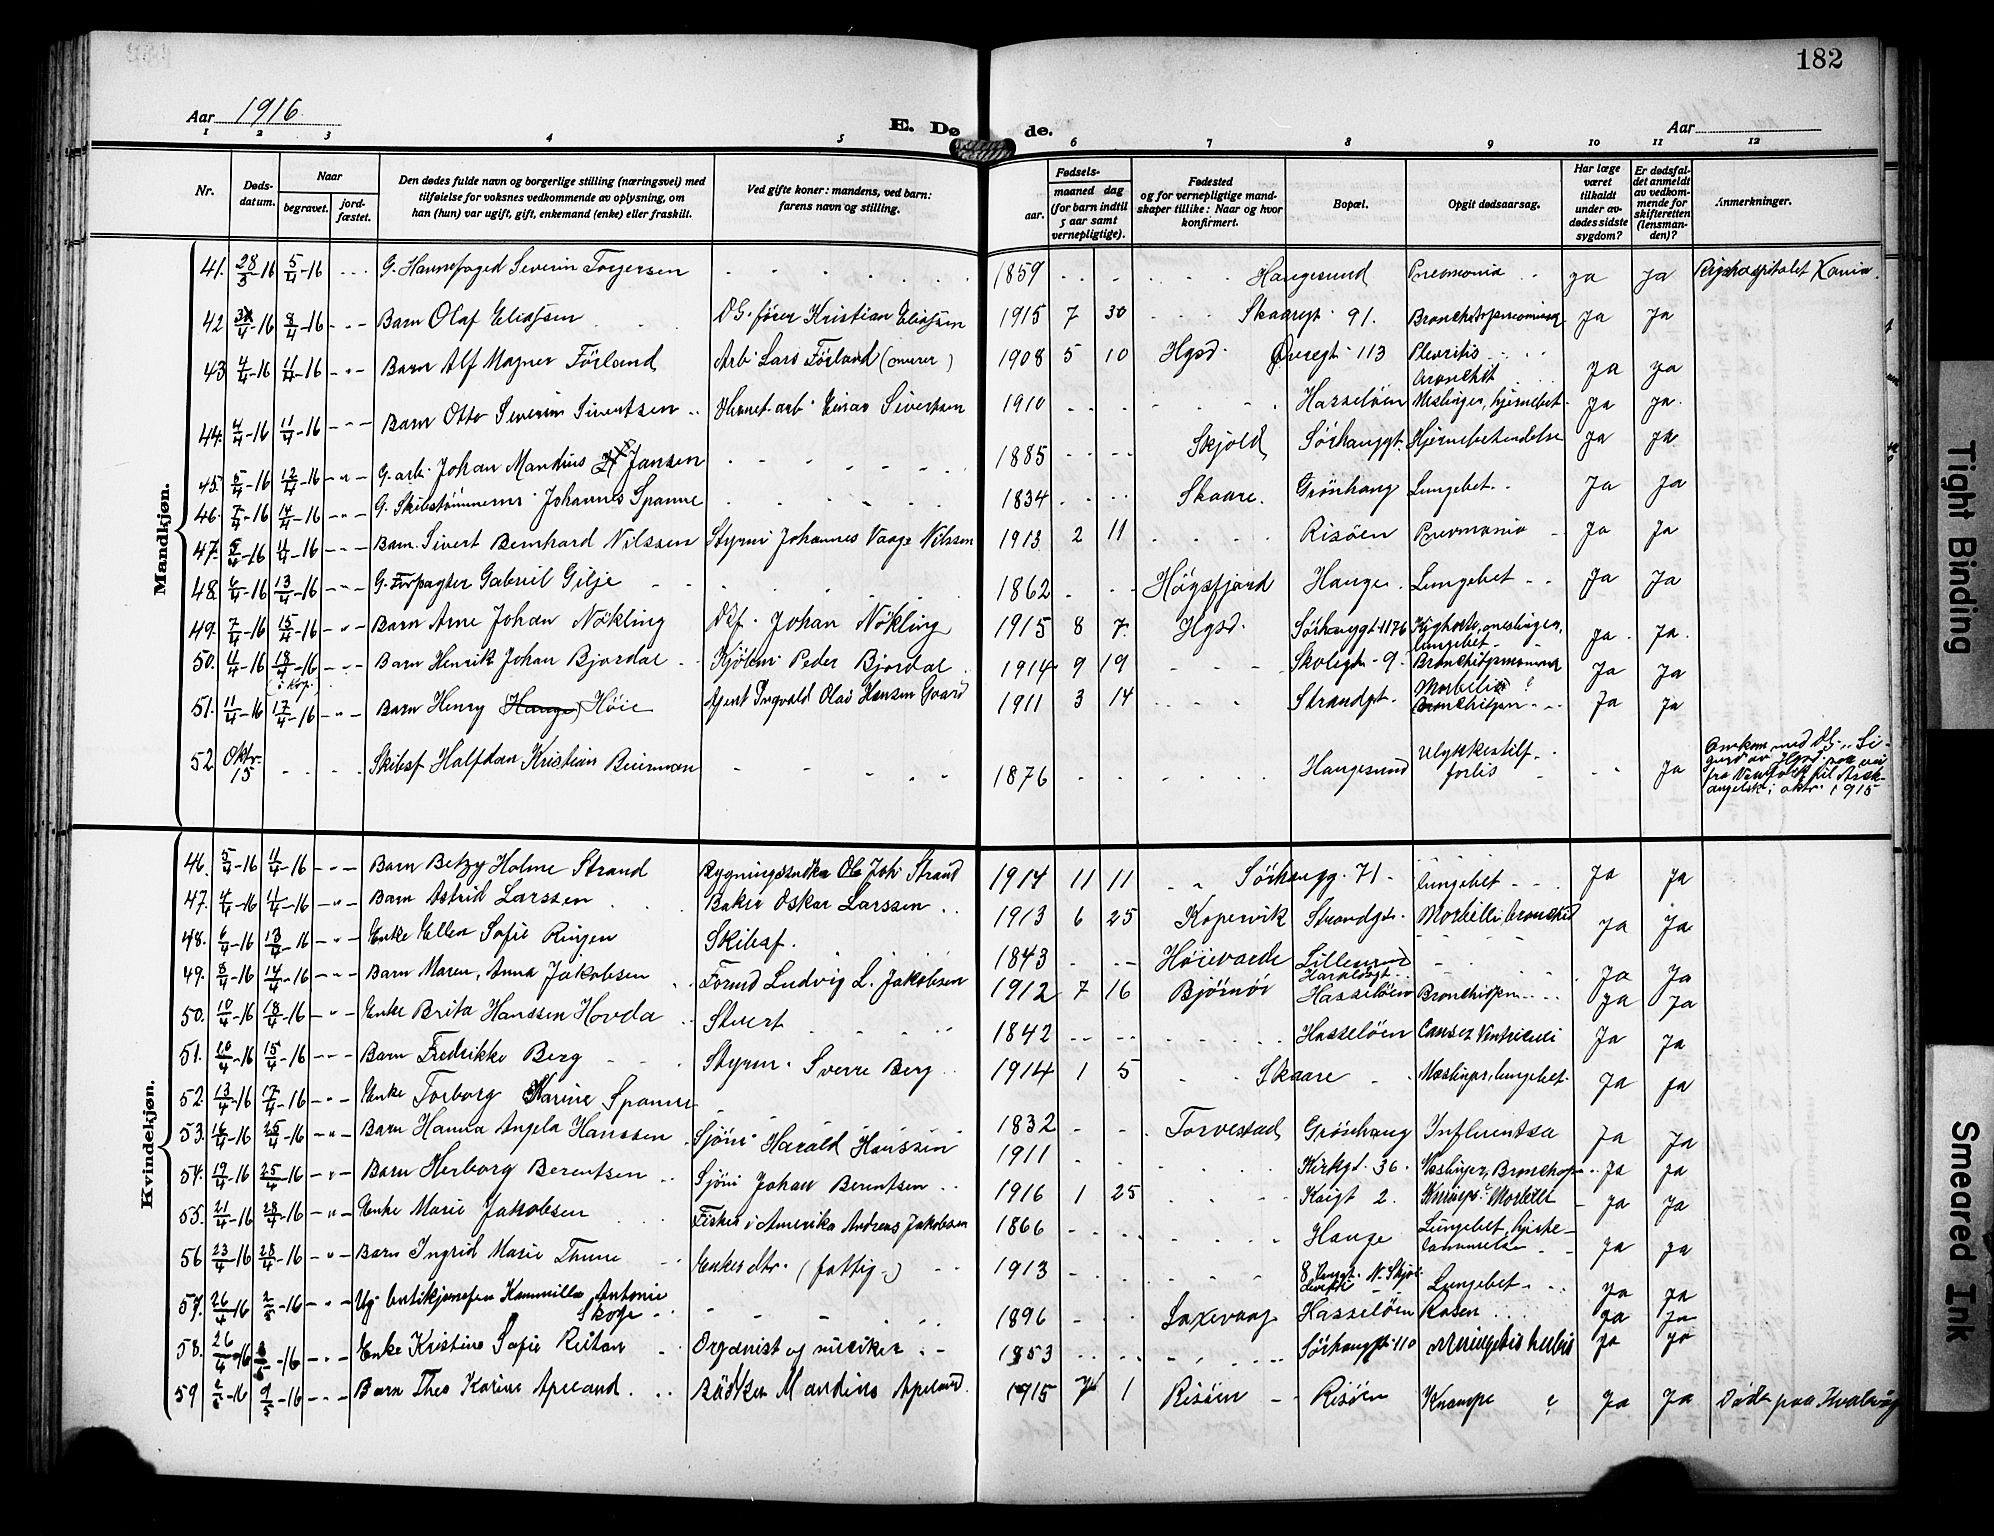 182
Aar 1916
E. Dø de.
Aar
1 2 3 4 5 6 7 8 9 10 11 12
Nr.
Døds-
datum.
Naar
begravet.
jord-
fæstet.
Den dødes fulde navn og borgerlige stilling (næringsvei) med
tilføielse for voksnes vedkommende av oplysning, om
han (hun) var ugift, gift, enkemand (enke) eller fraskilt.
Ved gifte koner: mandens, ved barn:
farens navn og stilling.
Fødsels-
aar.
maaned dag
(for barn indtil
5 aar samt
vernepligtige).
Fødested
og for vernepligtige mand-
skaper tillike: Naar og hvor
konfirmert.
Bopæl.
Opgit dødsaarsag.
Har læge
været
tilkaldt
under av-
dødes sidste
sygdom?
Er dødsfal-
det anmeldt
av vedkom-
mende for
skifteretten
(lensman-
den)?
Anmerkninger.
Mandkjøn.
41. 28/3-16 5/4-16 G. Severin Torgersen 1859 Haugesund Pneomonia ja ja Rigshospitalet Kania.
42 8/4-16 Barn Olaf Eliassen Kristian Eliassen 1915 7 30 Skaaregt. 91. Ja Ja
43 4/4-16 11/4-16 Barn Alf Magner Førland Arb. Lars Førland (murer) 1908 5 10 Hgsd. Øvregt. 113 Pleuritis Bronchit ya ya
44. 4/4-16 11/4-16 Barn Otto Severin Sivertsen Einar Sivertsen 1910 Hasseløen Meslinger, hjernebet. ja ja.
45. 5/4-16 12/4-16 G. arb. Johan Mandius Jansen 1885 Skjold Sørhauggt. Hjernebetændelse ja ja
46. 7/4-16 14/4-16 G. Skibstømmerm. Johannes Spanne 1834 Skaare. Grønhaug Lungebet. Ja Ja
47. 11/4-16 Barn Sivert Bernhard Nilssen Styrm. Johannes Vaage Nilssen 1913 2 11 Risøen Pneomonia Ja Ja
48. 6/4-16 13/4-16 G. Forpagter Gabriel Gilje 1862 Høgsfjord Hauge. Lungebet Ja Ja
49. 7/4-16 15/4-16 Barn Arne Johan Nøkling Johan Nøkling 1915 8 7. Hgsd. Sørhauggt. 176 Kighoste, meslinger, lungebet Ja. Ja.
50. 11/4-16 18/4-16 Barn Henrik Johan Bjordal Peder Bjordal 1914 9 19 Skolegt. 9. Bronchitpneomonia Ja Ja
51. 11/4-16 17/4-16 Barn Henry (Hauge) Høie Agent Ingvald Olai Hansen Gaard 1911 3 14 Strandgt. Morbelis ? Bronchitpn. Ja Ja
52 Oktr. 15 Skibsf Halfdan Kristian Beierman 1876 Haugesund Ulykkestilf. forlis Ja Omkom med DS. "Sigurd" av Hgsd. paa vei fra New York til Arkangelsk i oktr. 1915
Kvindekjøn.
46. 5/4-16 11/4-16 Barn Betzy Holme Strand Bygningssnedker Ole Joh. Strand 1914 11 11 Sørhaugg. 71 lungebet Ja Ja
47. 4/4-16 11/4-16 Barn Astrid Larssen Baker Oskar Larssen 1913 6 25 Kopervik Strandgt. Morbilli, bronchit Ja Ja
48. 6/4-16 13/4-16 Enke Ellen Sofie Ringen Skibsf. 1843 Høievarde Lillesund Haraldsgt. Ja Ja
49. 8/4-16 14/4-16 Barn Maren, Anna Jakobsen Formd Ludvig L. Jakobsen 1912 7 16 Bjørnør Hasseløen Bronchitpn Ja Ja
50. 10/4-16 18/4-16 Enke Brita Hanssen Hovda Stuert 1842 Hasseløen Cancer Ventriculi Ja Ja
51. 10/4-16 15/4-16 Barn Fredrikke Berg Styrm. Sverre Berg 1914 1 5 Skaare Meslinger, lungebet. Ja Ja
52 13/4-16 17/4-16 Enke Torborg Karine Spanne 1832 Torvestad Grønhaug Influentsa Ja Ja
53. 16/4-16 25/4-16 Barn Hanna Angela Hanssen Sjøm. Harald Hanssen 1911 Kirkgt. 36. Meslinger, Bronchopn Ja Ja
54. 19/4-16 25/4-16 Barn Herborg Berentsen Sjøm Johan Berentsen 1916 1 25 Kaigt 2. Morbilli Ja Ja
55. 21/4-16 28/4-16 Enke Marie Jakobsen Fisker i Amerika Andreas Jakobsen 1866 Hauge Lungebet, hjertelammelse Ja Ja
56 23/4-16 28/4-16 Barn Ingrid Marie Thune Enkes dtr. (fattig) 1913 Lungebet Ja Ja
57. 26/4-16 2/5-16 Ug. butikjomfru Kammilla Antonie Skoge 1896 Saxevaag Hasseløen Rosen Ja Ja
58. 26/4-16 -16 Enke Kristine Sofie Reitan Organist og musiker 1853 Sørhauggt. 110 Ja Ja
59 2/5-16 9/5-16 Barn Thea Karine Apeland. Bødker Mandius Apeland. 1915 1 Risøen Risøen Krampe ? Ja Ja Døde paa Hvalvåg
Tight Binding
Smeared Ink